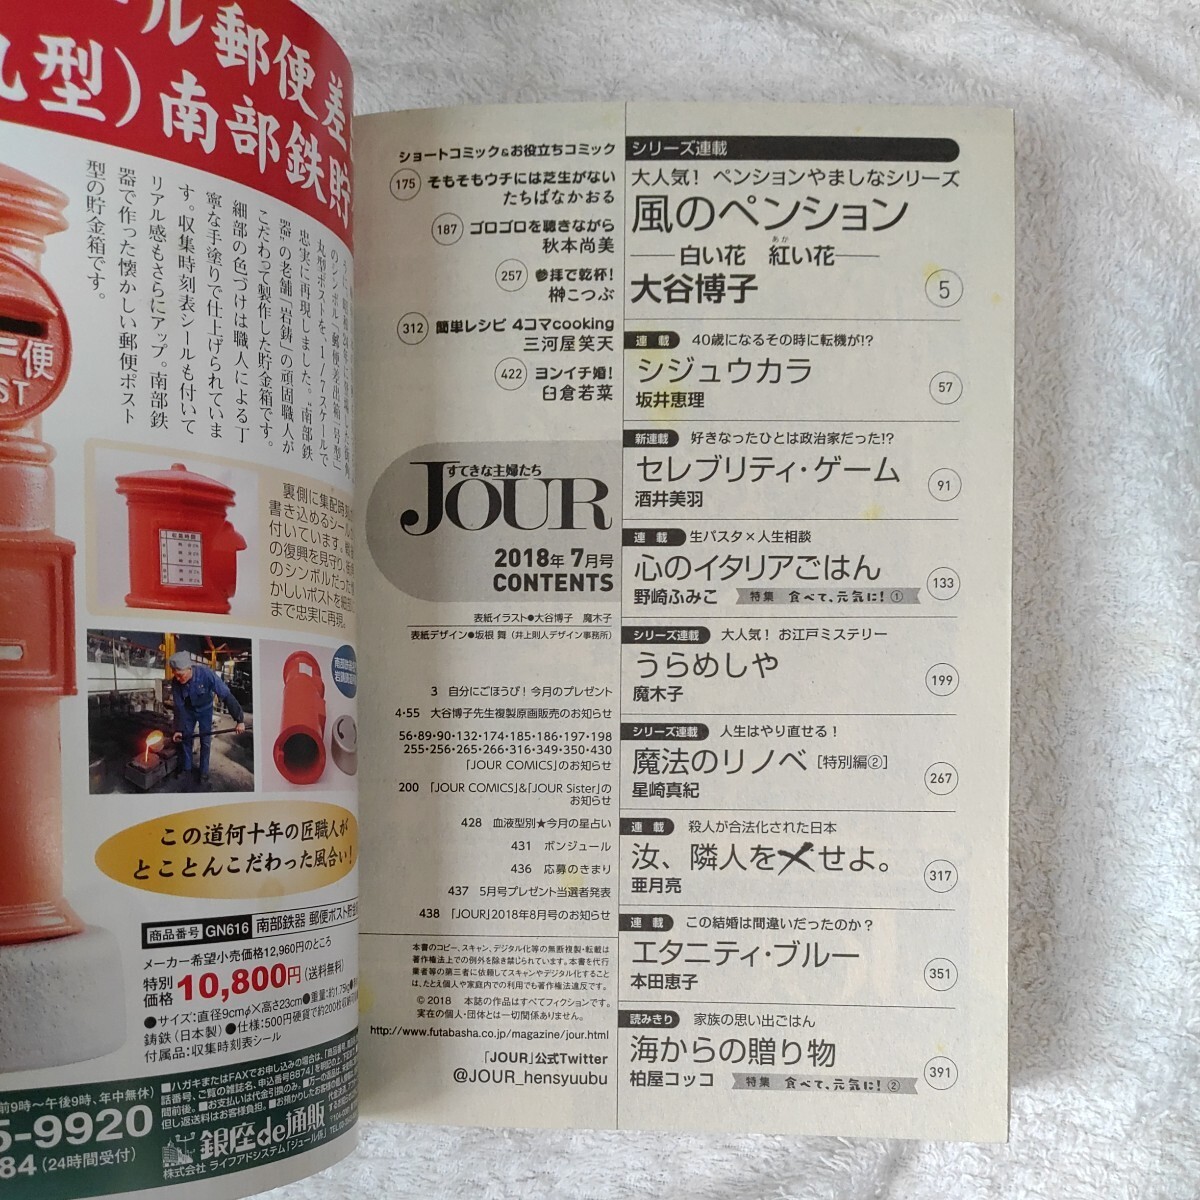 ル郵便差
丸型)南部鉄貯
丸型ポストを、1/7スケールで
忠実に再現しました。"南部鉄
器"の老舗「岩鋳」の頑固職人が
こだわって製作した貯金箱です。
細部の色づけは職人による丁
寧な手塗りで仕上げられていま
す。収集時刻表シールも付いて
リアル感もさらにアップ。南部鉄
器で作った懐かしい郵便ポスト
型の貯金箱です。
便
ST
裏側に集配時
書き込めるシール
付いています。
の復興を見守り、
のシンボルだった
かしいポストを細
まで忠実に再現。
この道何十年の匠職人が
とことんこだわった風合い!
商品番号 GN616 南部鉄器 郵便ポスト貯金
メーカー希望小売価格12,960円のところ
特別価格 10,800円(送料無料)
●サイズ:直径9cmφ×高さ23cm●重量:約1.75kg
鋳鉄(日本製)●仕様:500円硬貨で約200枚収納
付属品:収集時刻表シール
前9時〜午後9時、年中無休)
5-9920
84(24時間受付)
■ハガキまたはFAXでお申し込みの場合は、
話番号、ご覧の雑誌名、申込番号8874)を明記の上、
間前後。■お支払いは代金引換のみ。
但し返送料はお客様負担。
銀座de通販
株式会社 ライフアドシステム「ジュール係」
ショートコミック&お役立ちコミック
175 そもそもウチには芝生がない
たちばなかおる
187 ゴロゴロを聴きながら
秋本尚美
257 参拝で乾杯!
榊こつぶ
312 簡単レシピ 4コマcooking
三河屋笑天
422 ヨンイチ婚!
臼倉若菜
すてきな主婦たち
JOUR
2018年7月号
CONTENTS
表紙イラスト●大谷博子 魔木子
表紙デザイン●坂根 舞(井上則人デザイン事務所)
3 自分にごほうび!今月のプレゼント
4・55 大谷博子先生複製原画販売のお知らせ
56・89・90・132・174・185・186・197・198
255・256・265・266・316・349・350・430
「JOUR COMICS」のお知らせ
200 「JOUR COMICS」&「JOUR Sister」の
お知らせ
428 血液型別★今月の星占い
431 ボンジュール
436 応募のきまり
437 5月号プレゼント当選者発表
438 「JOUR」2018年8月号のお知らせ
本書のコピー、スキャン、デジタル化等の無断複製・転載は
著作権法上での例外を除き禁じられています。本書を代行
業者等の第三者に依頼してスキャンやデジタル化すること
は、たとえ個人や家庭内での利用でも著作権法違反です。
©2018 本誌の作品はすべてフィクションです。
実在の個人・団体とは一切関係ありません。
http://www.futabasha.co.jp/magazine/jour.html
「JOUR」公式Twitter
@JOUR_hensyuubu
シリーズ連載
大人気! ペンションやましなシリーズ
風のペンション
―白い花 紅い花―
あか
大谷博子 5
連載 40歳になるその時に転機が!?
シジュウカラ
坂井恵理 57
新連載 好きなったひとは政治家だった!?
セレブリティ・ゲーム
酒井美羽 91
連載 生パスタ×人生相談
心のイタリアごはん
野崎ふみこ 特集 食べて、元気に!① 133
シリーズ連載 大人気! お江戸ミステリー
うらめしや
魔木子 199
シリーズ連載 人生はやり直せる!
魔法のリノベ[特別編②]
星崎真紀 267
連載 殺人が合法化された日本
汝、隣人を〆せよ。
亜月亮 317
連載 この結婚は間違いだったのか?
エタニティ・ブルー
本田恵子 351
読みきり 家族の思い出ごはん
海からの贈り物
柏屋コッコ 特集 食べて、元気に!② 391